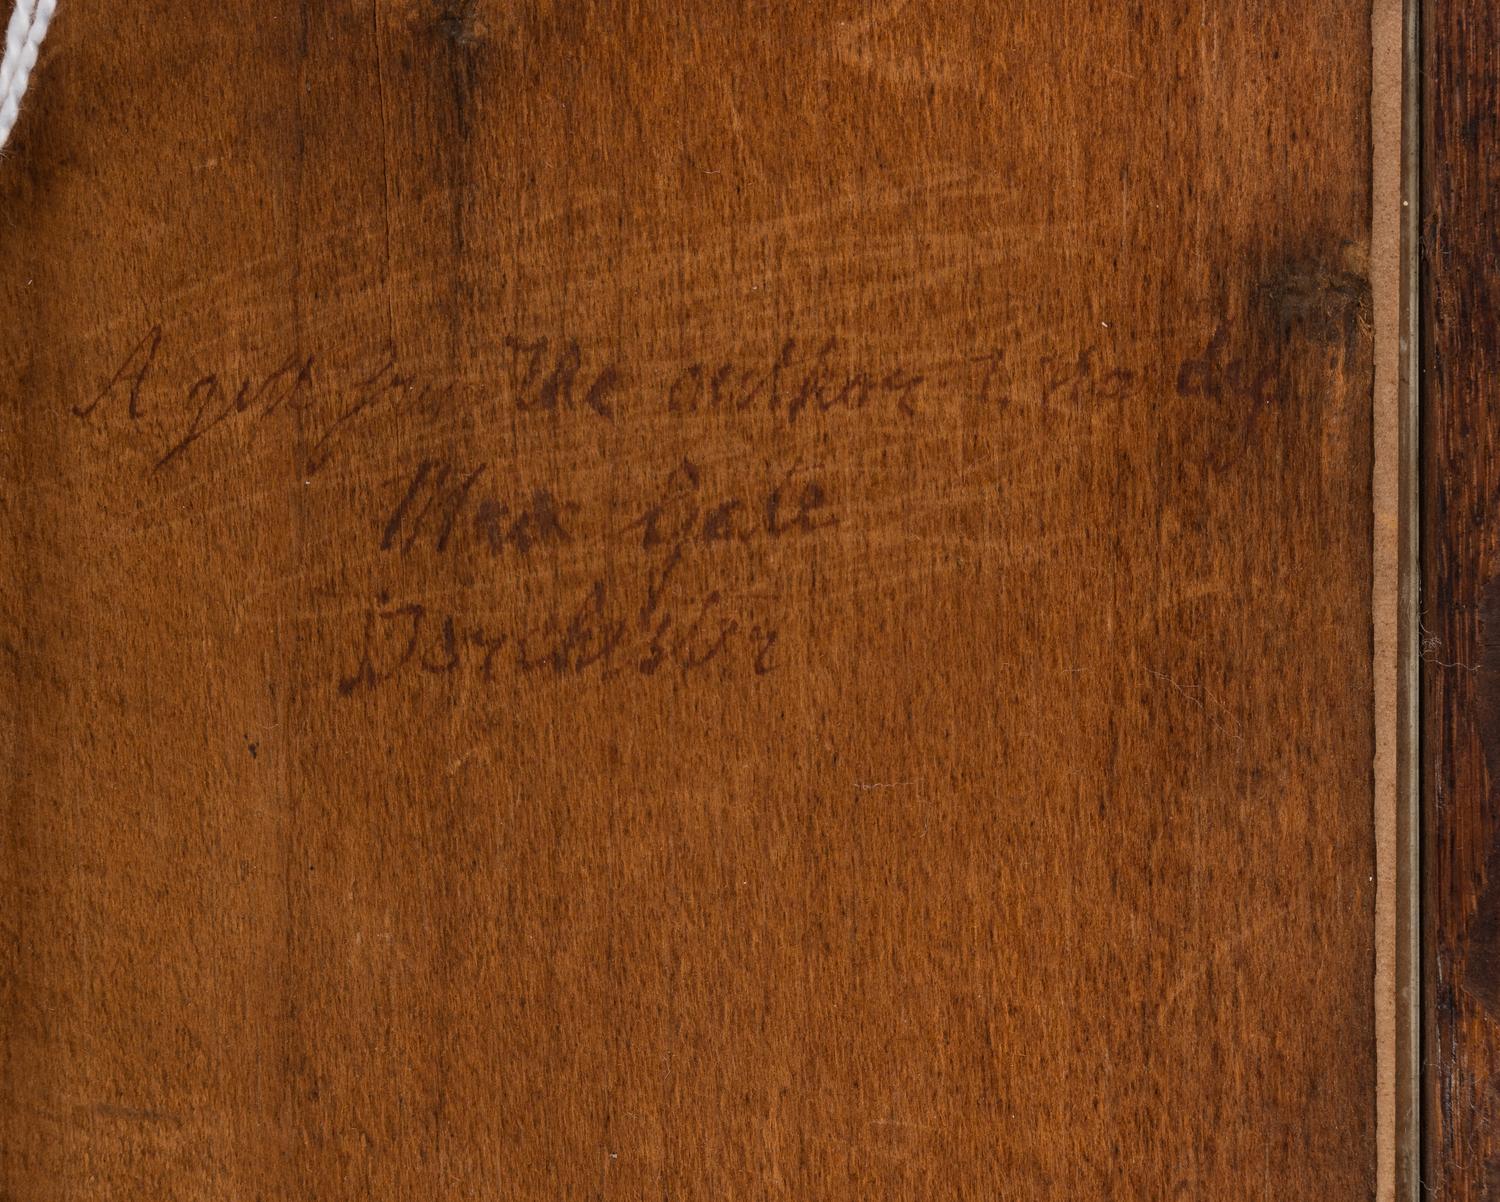 A gift from the author T. Hardy
Max Gate
Dorchester